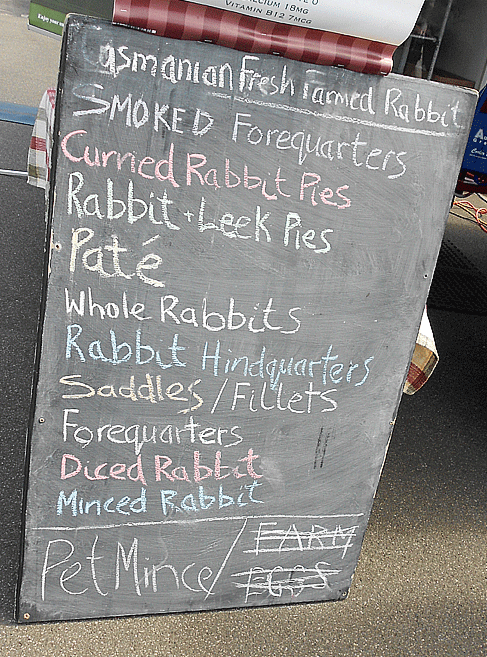 CALCIUM 18MG
VITAMIN B12 7MCG
Tasmanian Fresh Farmed Rabbit
SMOKED Forequarters
Curried Rabbit Pies
Rabbit + Leek Pies
Paté
Whole Rabbits
Rabbit Hindquarters
Saddles / Fillets
Forequarters
Diced Rabbit
Minced Rabbit
Pet Mince / FARM
EGGS